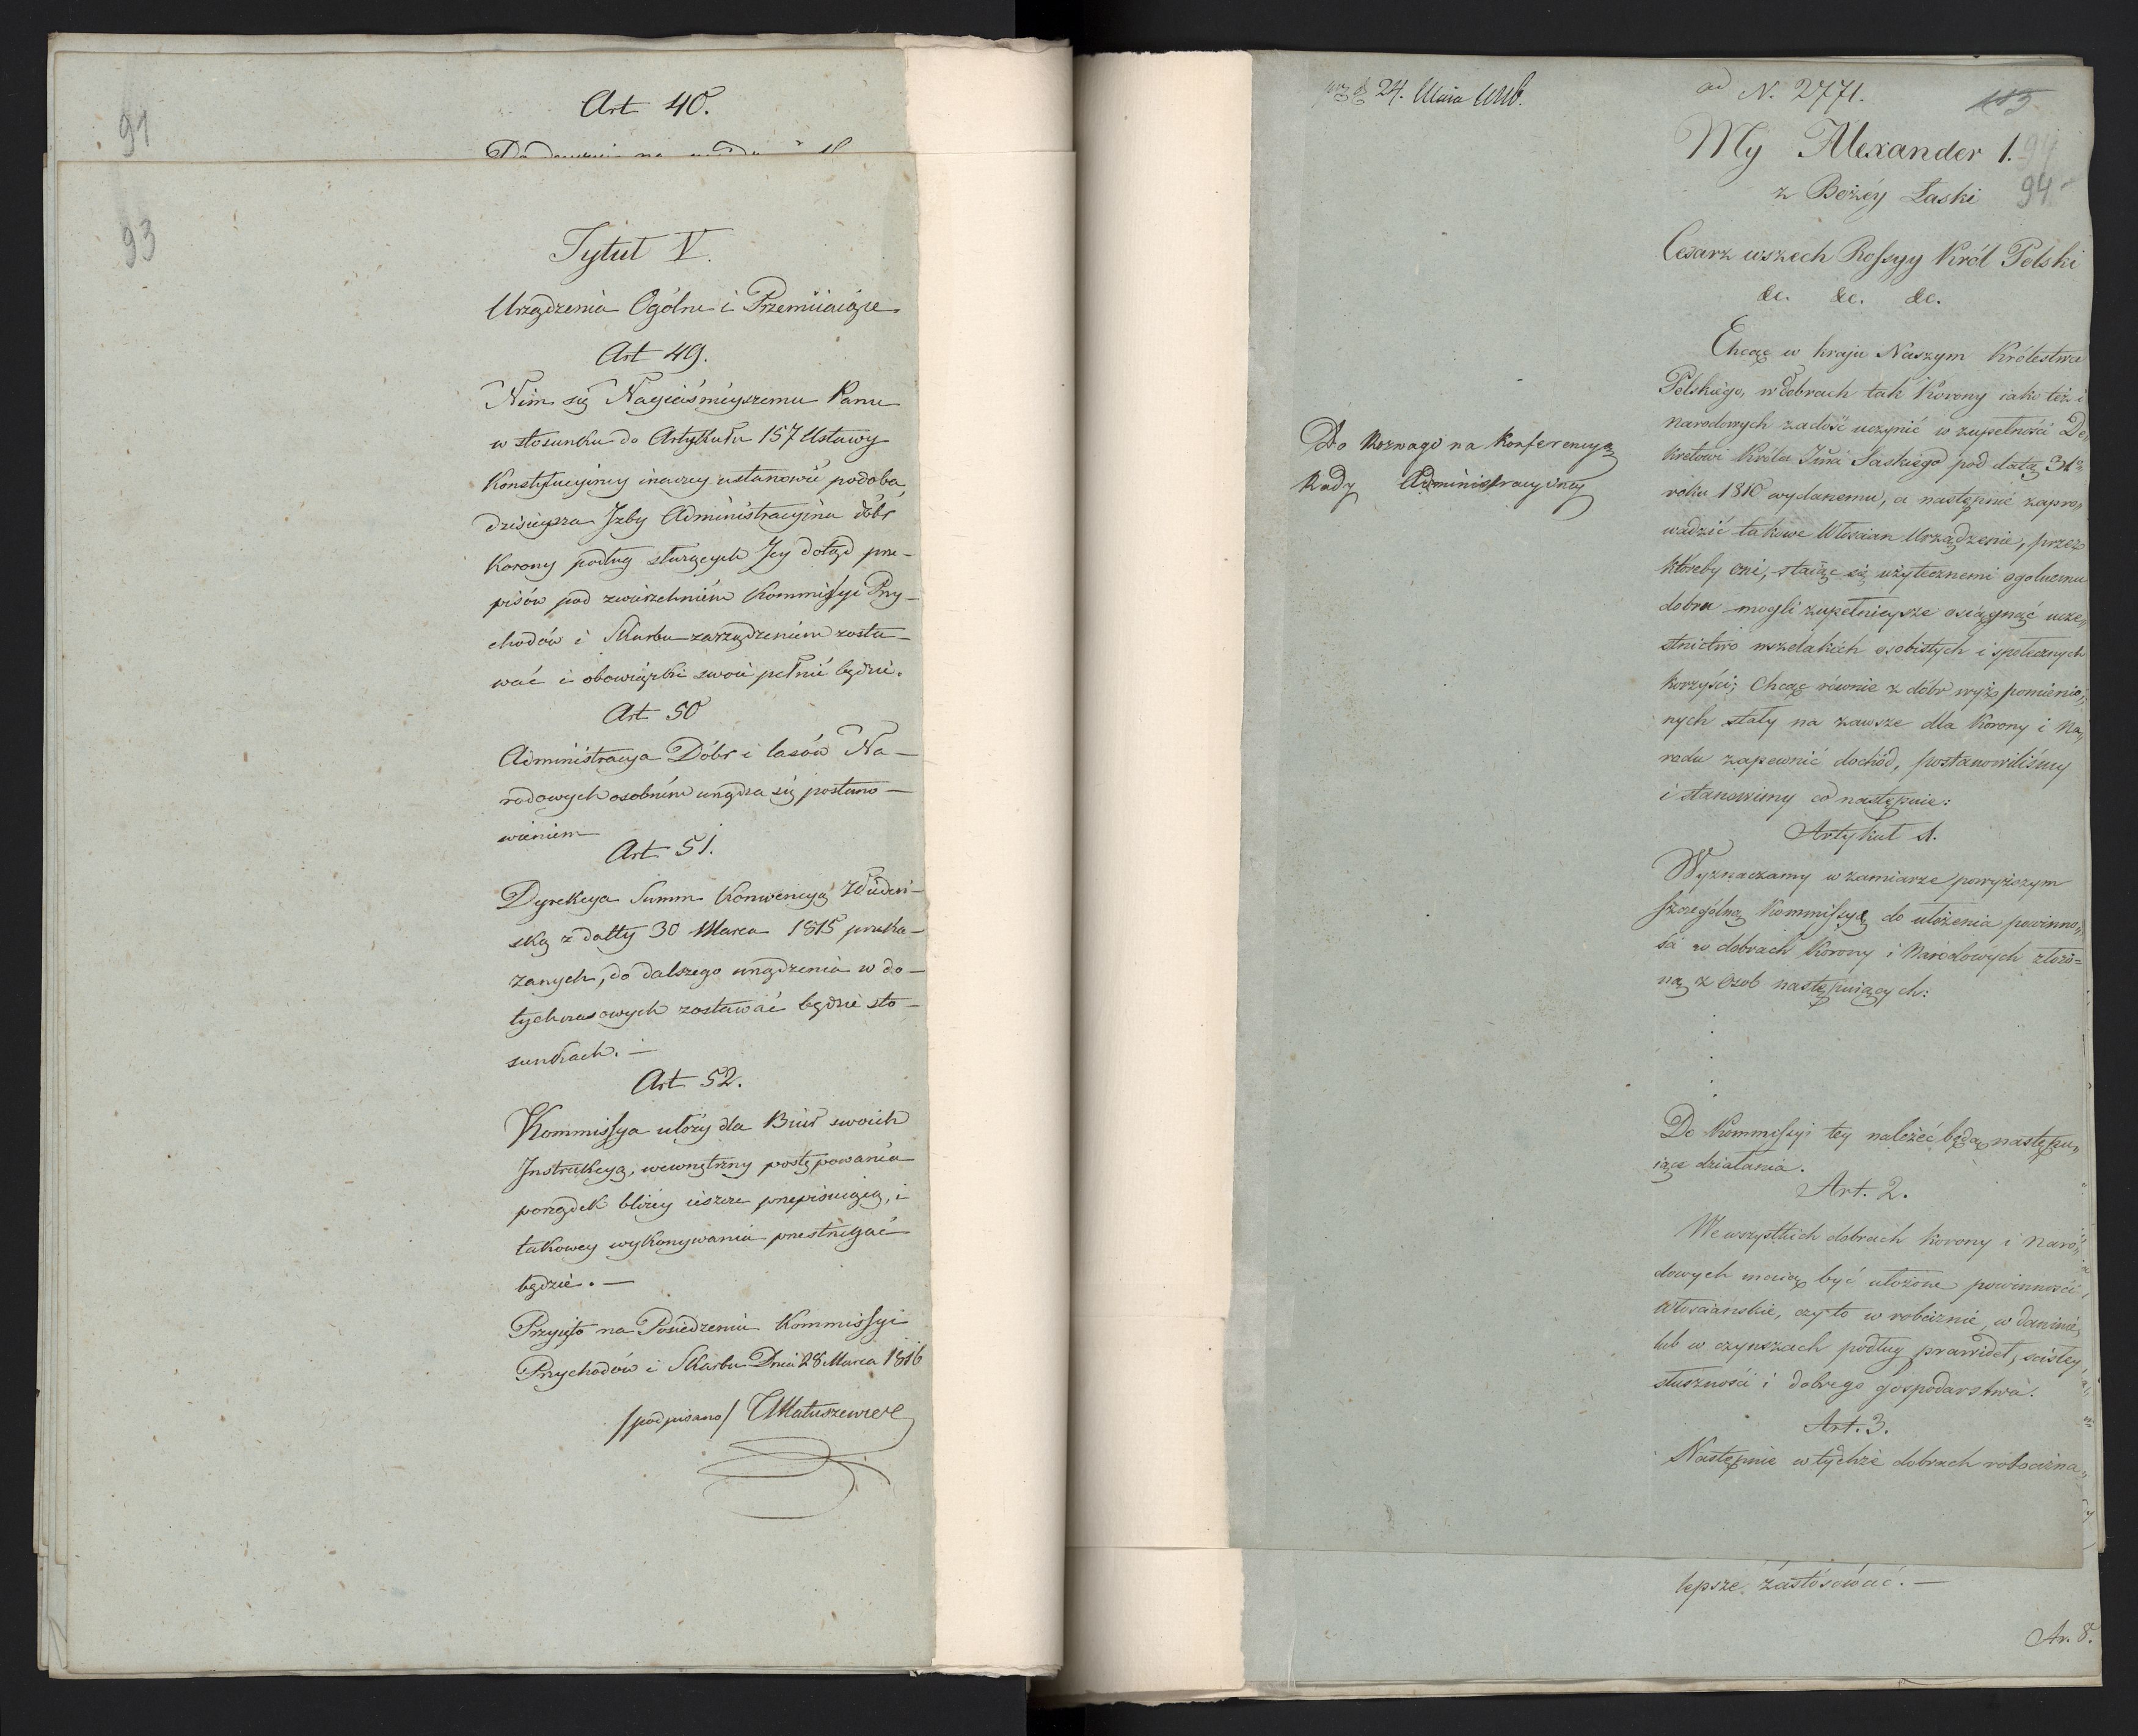 91
Art 40.
93
Tytuł V.
Urządzenia Ogólne i Przemiiaiące
Art 49.
Nim się Nayiaśnieyszemu Panu
w stosunku do Artykułu 157 Ustawy
Konstytucyiney inaczey ustanowić podoba,
dzisieysza Izby Administracyina dóbr
Korony podług służących Jey dotąd prze-
pisów pod zwierzchniém Kommissyi Przy-
chodów i Skarbu zarządzeniem zosta-
wać i obowiązki swoie pełnić będzie.
Art 50
Administracya Dóbr i lasów Na-
rodowych osobném urządza się postano-
wieniem
Art 51.
Dyrekcya Summ Konwencyą Wiedeń-
ską z datty 30 Marca 1815 przeka-
zanych, do dalszego urządzenia w do-
tychczasowych zostawać będzie sto-
sunkach. —
Art 52.
Kommissya ułoży dla Biór swoich
Instrukcyą, wewnętrzny postępowania
porządek bliżey ieszcze przepisuiącą, i
takowey wykonywania przestrzegać
będzie. —
Przyięto na Posiedzeniu Kommissyi
Przychodów i Skarbu Dnia 28 Marca 1816
/podpisano/ TMatuszewicz
24. Maia 1816.
ad N. 2771.
115
My Alexander 1.
94
z Bożéy Łaski
94
Cesarz wszech Rossyy Król Polski
&c. &c. &c.
Chcąc w kraju Naszym Królestwa
Polskiego, w dobrach tak Korony iako też i
narodowych zadość uczynić w zupełności De„
kretowi Króla Jmci Saskiego pod datą 31o
roku 1810 wydanemu, a następnie zapro„
wadzić takowe Włościan Urządzenie, przez
któreby oni, staiąc się użytecznemi ogolnemu
dobru mogli zupełnieysze osiągnąć ucze„
stnictwo wszelakich osobistych i społecznych
korzyści; Chcąc równie z dóbr wyż pomienio„
nych stały na zawsze dla Korony i Na„
rodu zapewnić dochód, postanowiliśmy
i stanowimy co następuie:
Do Rozwagi na Konferencyą
Rady Administracyiney
Artykuł 1.
Wyznaczamy w zamiarze powyższym
szczególną Kommissyą do ułożenia powinno„
ści w dobrach Korony i Narodowych złożo=
ną z Osob następuiących:
Do Kommissyi tey należéć będą następu„
iące działania.
Art. 2.
We wszystkich dobrach Korony i Naro„
dowych maią być ułożone powinności
włościańskie, czy to w robociznie, w daninie,
lub w czynszach podług prawideł, ścisłey
słuszności i dobrego gospodarstwa.
Art. 3.
Następnie w tychże dobrach robocizna„
lepsze zastosować. —
Ar. 8.